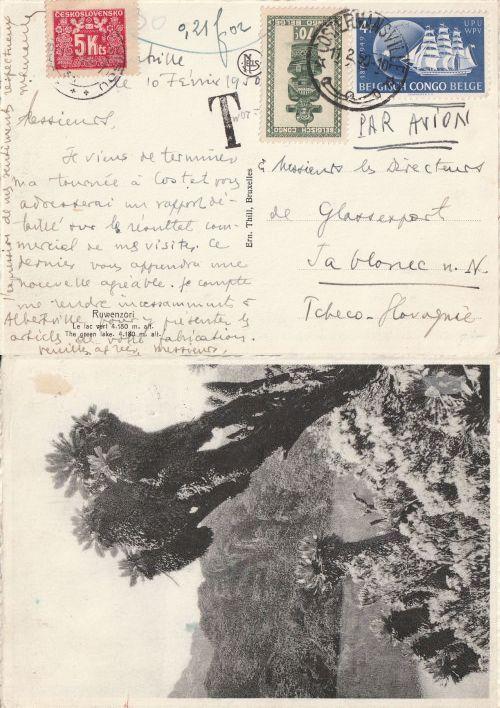 ČESKOSLOVENSKO
5Kčs
0,21 fcor
le 10 Février 1950
T
BELGISCH CONGO
CONGO BELGE
COSTERMANSVILLE
1874 1949
4F
UPU
WPV
BELGISCH CONGO BELGE
PAR AVION
Messieurs,
Je viens de terminer
ma tournée à Costat vous
adresserai un rapport dé-
taillé sur le résultat com-
mercial de ma visite. Ce
dernier vous apprendra une
nouvelle agréable. Je compte
me rendre incessamment à
Albertville pour y présenter les
articles de votre fabrication.
Veuillez agréer, Messieurs,
l'expression de mes sentiments respectueux
Ruwenzori
Le lac vert 4.180 m. alt.
The green lake. 4.180 m. alt.
Ern. Thill, Bruxelles
Messieurs les Directeurs
de Glassexport
Jablonec n. N.
Tcheco-Slovaquie